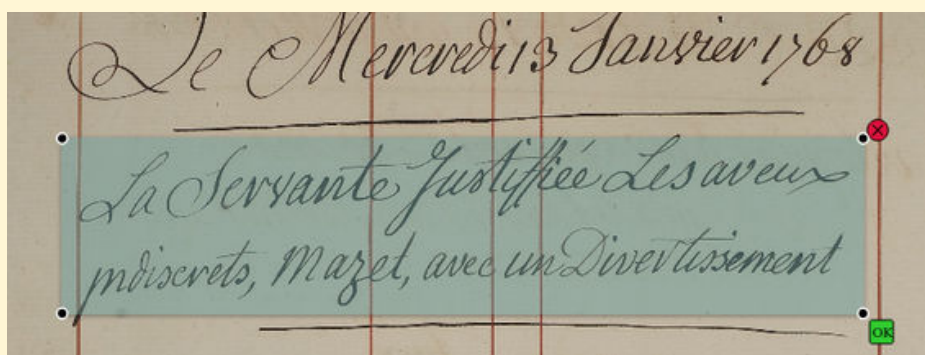 Le Mercredi 13 Janvier 1768
La Servante Justiffiée Les aveux
indiscrets, Mazet, avec un Divertissement
OK